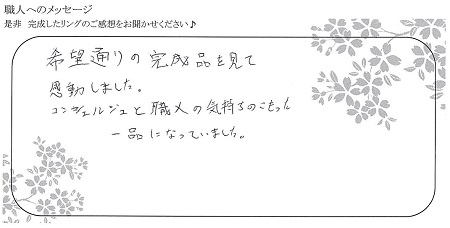 職人へのメッセージ
是非 完成したリングのご感想をお聞かせください♪
希望通りの完成品を見て
感動しました。
コンシェルジュと職人の気持ちのこもった
一品になっていました。